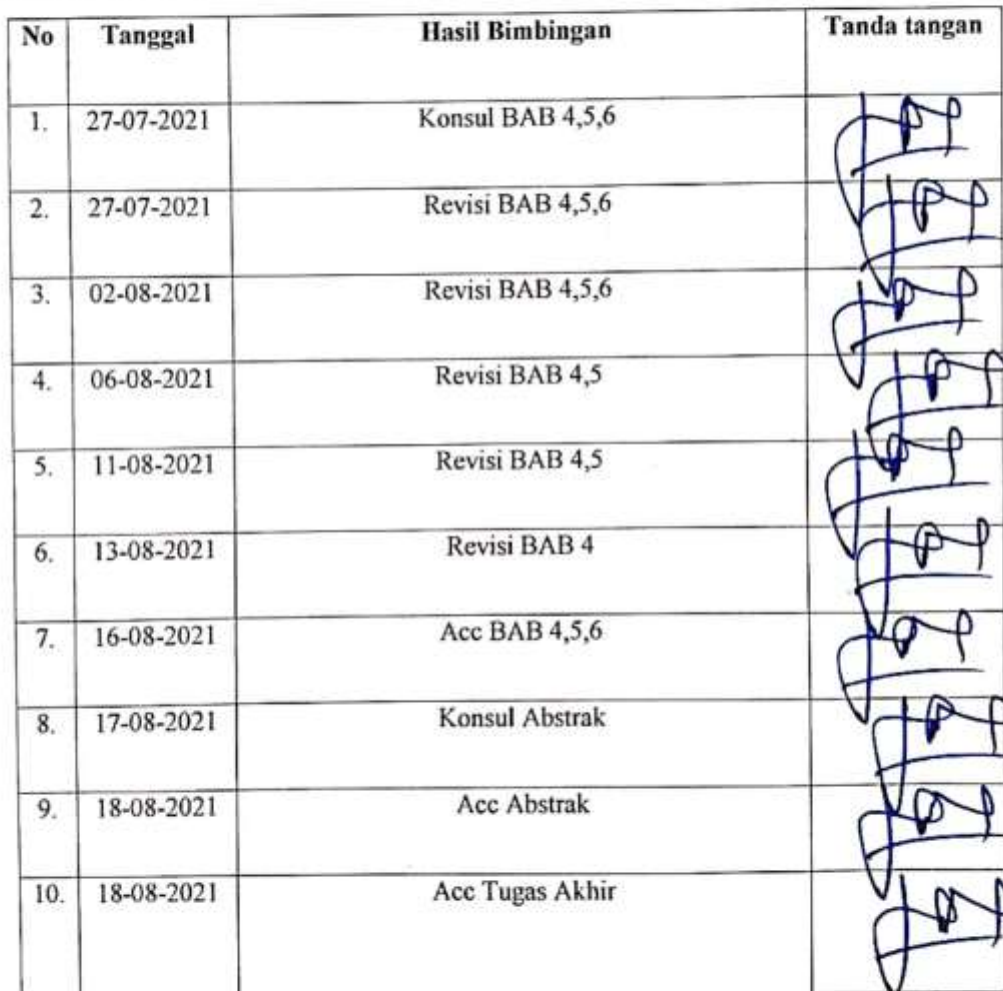 No Tanggal Hasil Bimbingan Tanda tangan
1. 27-07-2021 Konsul BAB 4,5,6
2. 27-07-2021 Revisi BAB 4,5,6
3. 02-08-2021 Revisi BAB 4,5,6
4. 06-08-2021 Revisi BAB 4,5
5. 11-08-2021 Revisi BAB 4,5
6. 13-08-2021 Revisi BAB 4
7. 16-08-2021 Acc BAB 4,5,6
8. 17-08-2021 Konsul Abstrak
9. 18-08-2021 Acc Abstrak
10. 18-08-2021 Acc Tugas Akhir